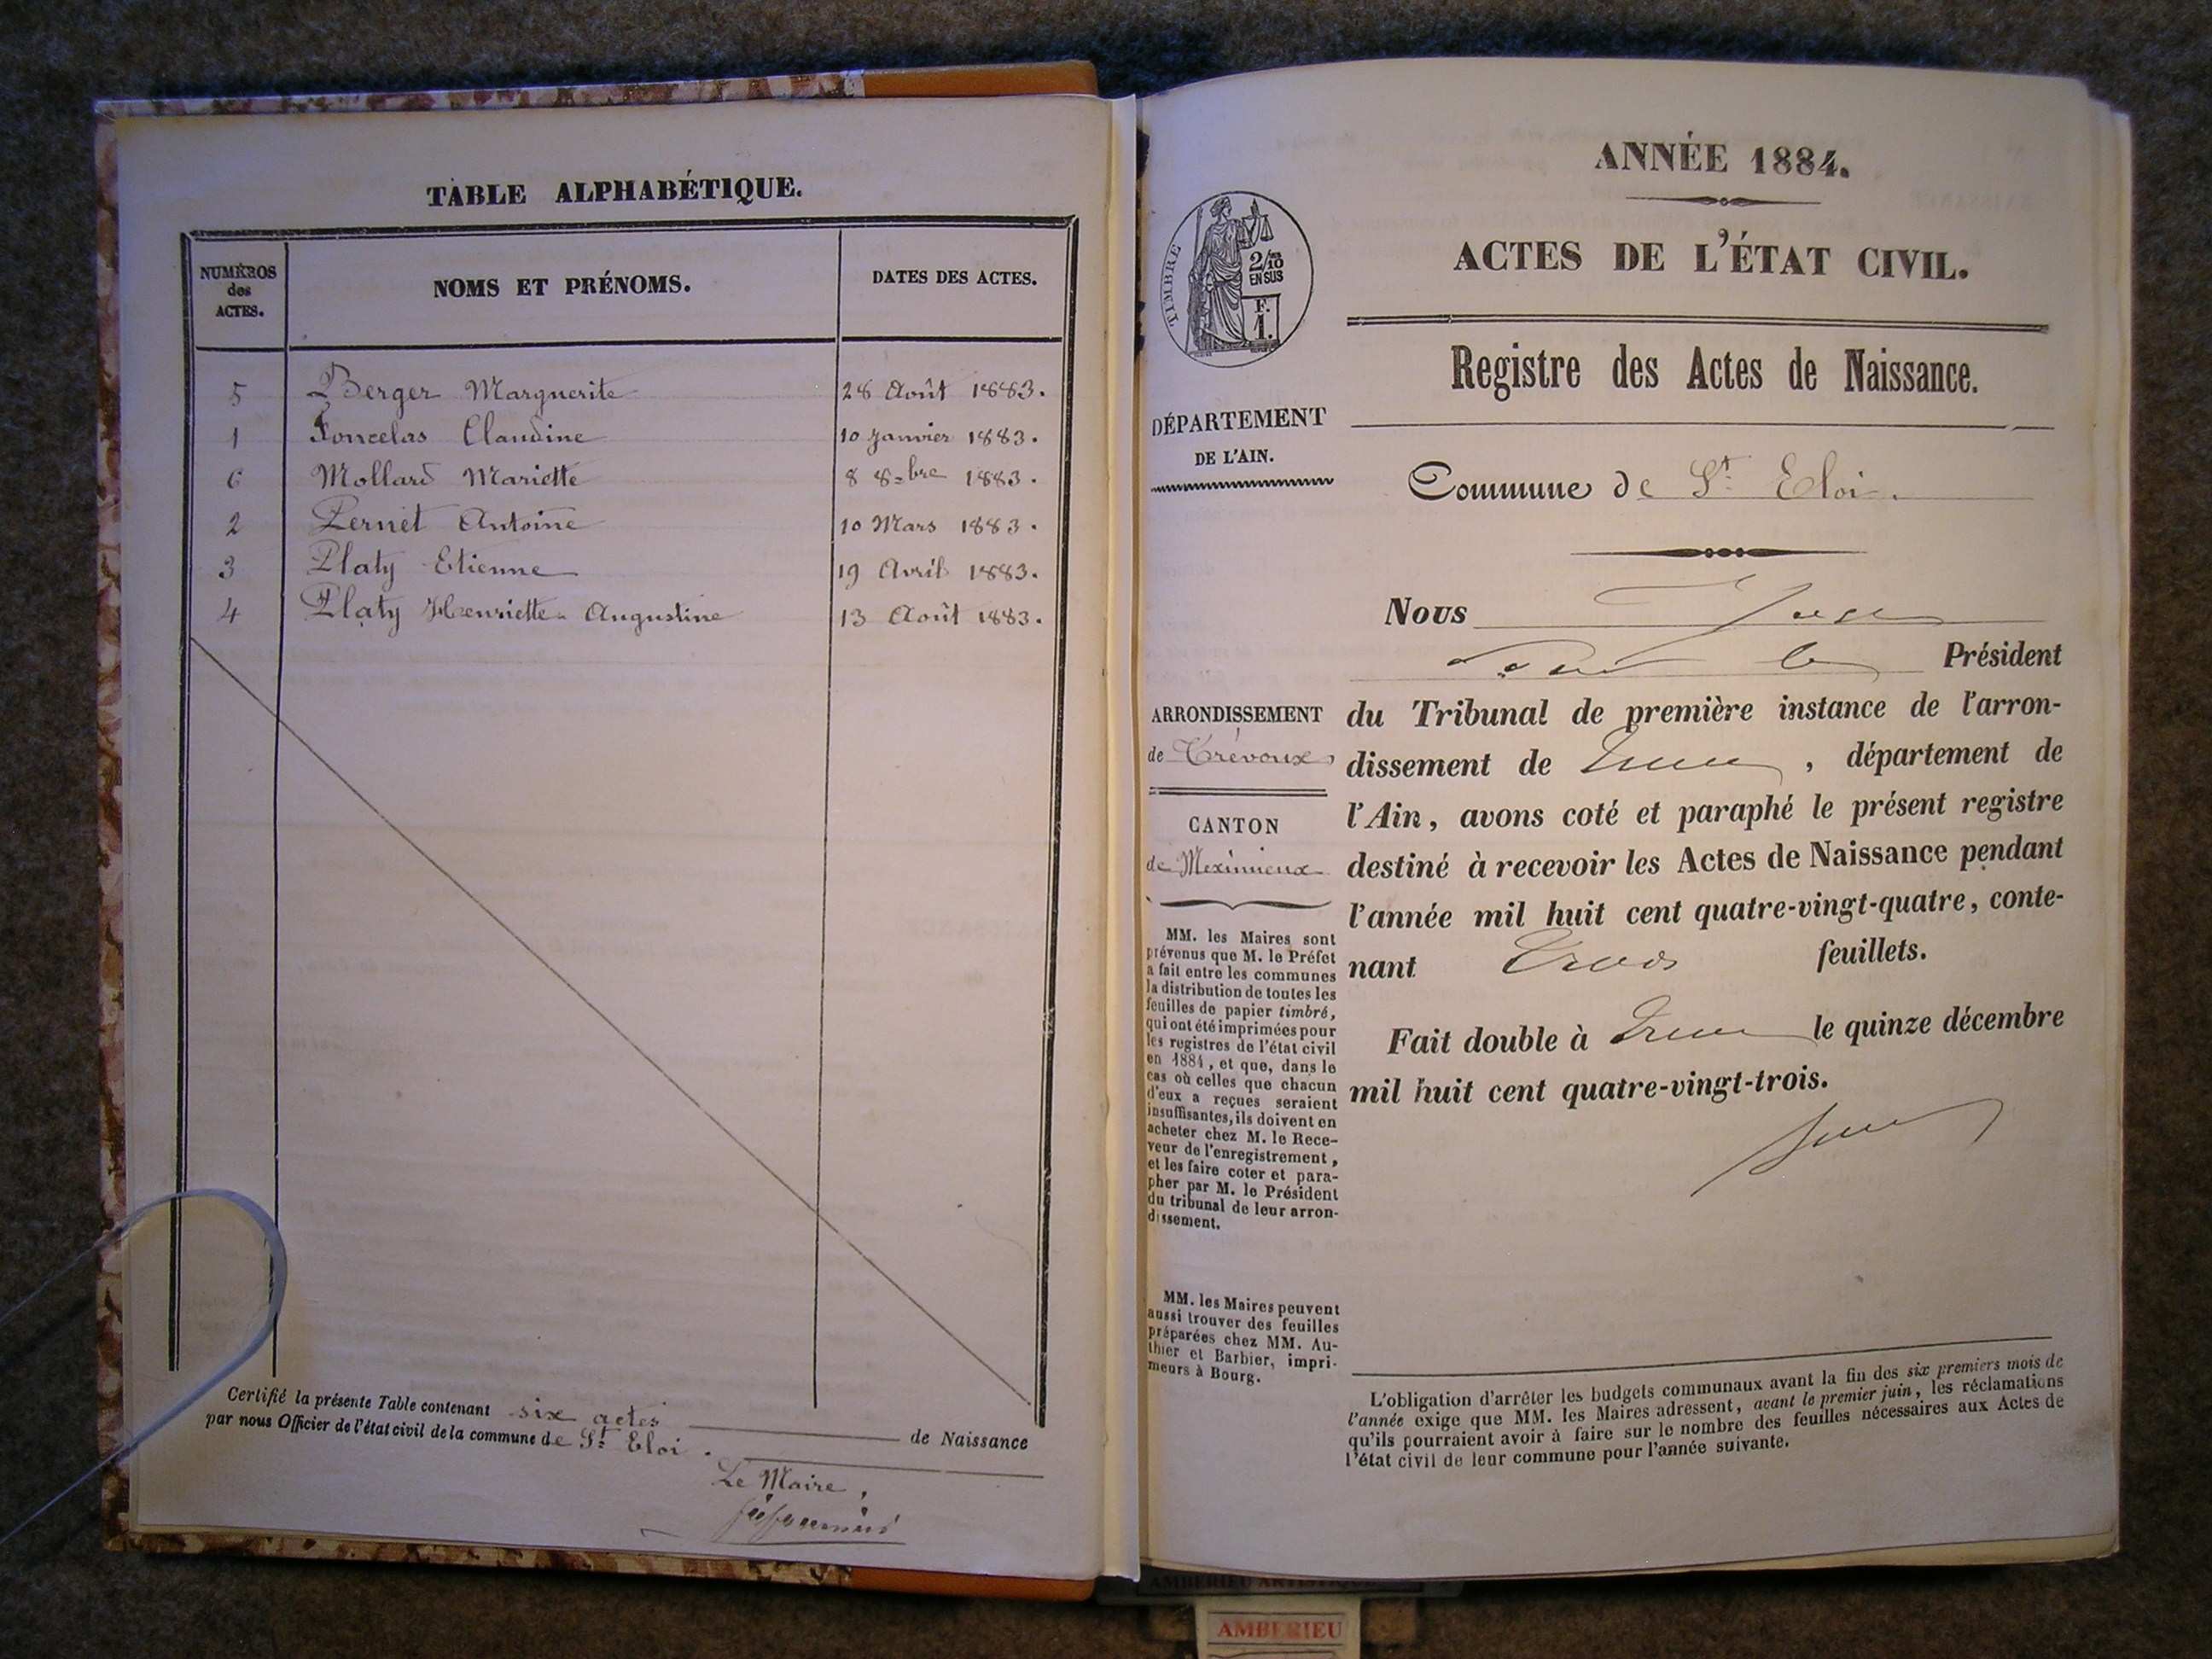 TABLE ALPHABÉTIQUE.
NUMÉROS des ACTES.
NOMS ET PRÉNOMS.
DATES DES ACTES.
5 Berger Marguerite 28 Août 1883.
1 Foncelas Claudine 10 Janvier 1883.
6 Mollard Mariette 8 8=bre 1883.
2 Pernet Antoine 10 Mars 1883.
3 Platy Etienne 19 Avril 1883.
4 Platy Henriette Augustine 13 Août 1883.
Certifié la présente Table contenant six actes de Naissance
par nous Officier de l'état civil de la commune de St Eloi.
Le Maire,
TIMBRE
2/10 EN SUS
F. 1.
DÉPARTEMENT
DE L'AIN.
ARRONDISSEMENT
de Trévoux
CANTON
de Meximieux
MM. les Maires sont
prévenus que M. le Préfet
a fait entre les communes
la distribution de toutes les
feuilles de papier timbré,
qui ont été imprimées pour
les registres de l'état civil
en 1884, et que, dans le
cas où celles que chacun
d'eux a reçues seraient
insuffisantes, ils doivent en
acheter chez M. le Rece-
veur de l'enregistrement,
et les faire coter et para-
pher par M. le Président
du tribunal de leur arron-
dissement.
MM. les Maires peuvent
aussi trouver des feuilles
préparées chez MM. Au-
thier et Barbier, impri-
meurs à Bourg.
ANNÉE 1884.
ACTES DE L'ÉTAT CIVIL.
Registre des Actes de Naissance.
Commune de St Eloi.
Nous
Président
du Tribunal de première instance de l'arron-
dissement de , département de
l'Ain, avons coté et paraphé le présent registre
destiné à recevoir les Actes de Naissance pendant
l'année mil huit cent quatre-vingt-quatre, conte-
nant trois feuillets.
Fait double à le quinze décembre
mil huit cent quatre-vingt-trois.
L'obligation d'arrêter les budgets communaux avant la fin des six premiers mois de
l'année exige que MM. les Maires adressent, avant le premier juin, les réclamations
qu'ils pourraient avoir à faire sur le nombre des feuilles nécessaires aux Actes de
l'état civil de leur commune pour l'année suivante.
AMBERIEU ARTISTIQUE
AMBERIEU